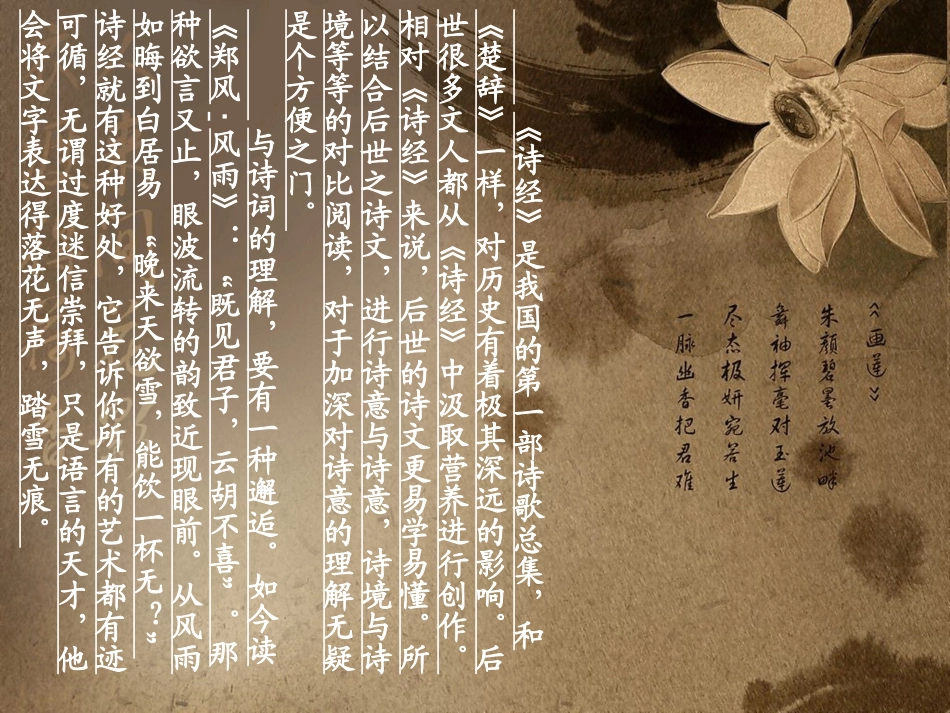 《画莲》
朱颜碧墨放池畔
舞袖挥毫对玉莲
尽态极妍宛若生
一脉幽香把君难
《诗经》是我国的第一部诗歌总集，和
《楚辞》一样，对历史有着极其深远的影响。后
世很多文人都从《诗经》中汲取营养进行创作。
相对《诗经》来说，后世的诗文更易学易懂。所
以结合后世之诗文，进行诗意与诗意，诗境与诗
境等等的对比阅读，对于加深对诗意的理解无疑
是个方便之门。
与诗词的理解，要有一种邂逅。如今读
《郑风·风雨》：“既见君子，云胡不喜”。那
种欲言又止，眼波流转的韵致近现眼前。从风雨
如晦到白居易“晚来天欲雪，能饮一杯无？”
诗经就有这种好处，它告诉你所有的艺术都有迹
可循，无谓过度迷信崇拜，只是语言的天才，他
会将文字表达得落花无声，踏雪无痕。